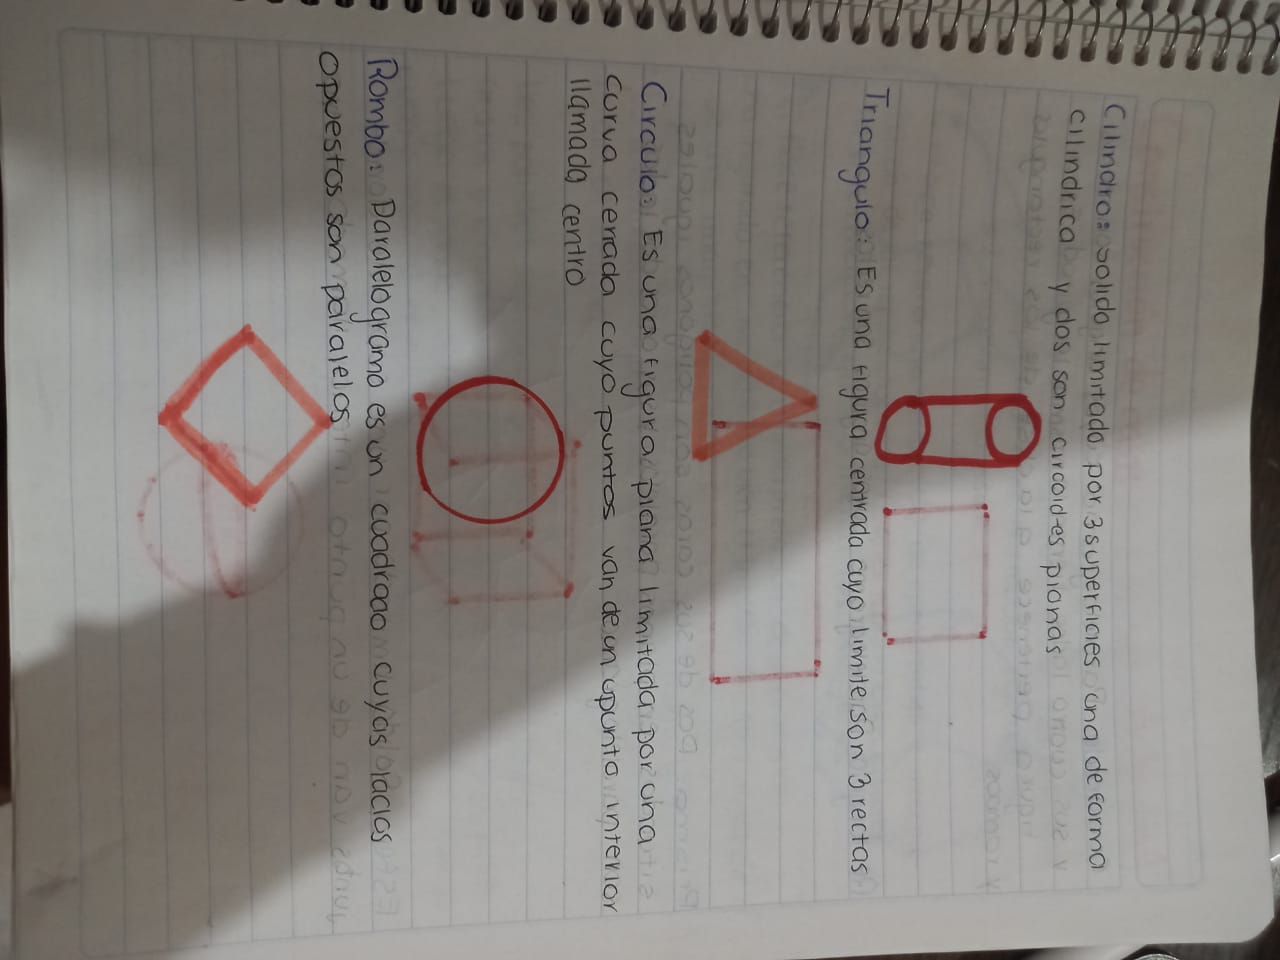 Cilindro: Solido limitado por 3 superficies una de forma
cilindrica y dos son circoides planas
Triangulo: Es una figura centrada cuyo limite son 3 rectas
Circulo: Es una figura plana limitada por una
curva cerrada cuyo puntos van de un punto interior
llamada centro
Rombo: Paralelogramo es un cuadrado cuyos lacios
opuestos son paralelos